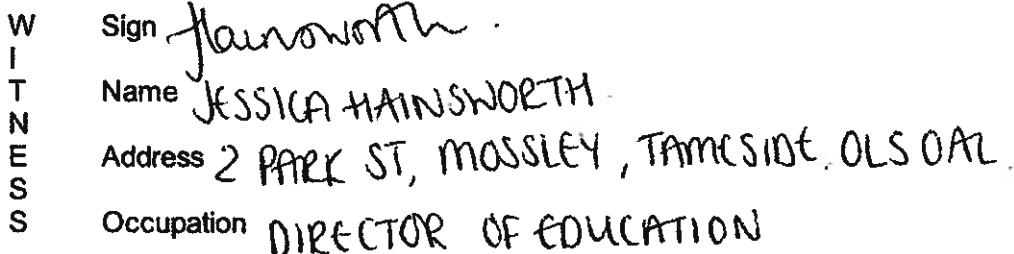 WITNESS
Sign Hainsworth.
Name JESSICA HAINSWORTH
Address 2 PARK ST, MOSSLEY, TAMESIDE. OL5 0AL.
Occupation DIRECTOR OF EDUCATION